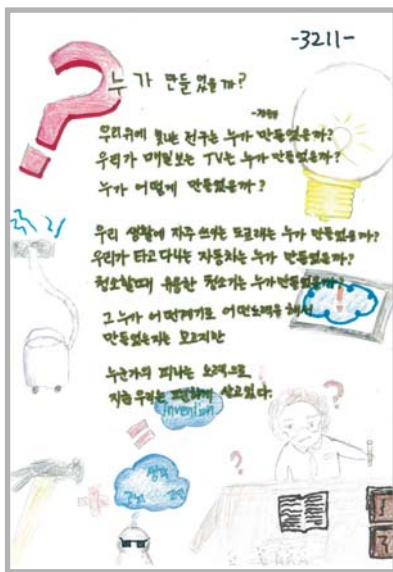 -3211-
누가 만들었을까?
우리위에 빛나는 전구는 누가 만들었을까?
우리가 매일보는 TV는 누가 만들었을까?
누가 어떻게 만들었을까?
우리 생활에 자주 쓰이는 도르래는 누가 만들었을까?
우리가 타고 다니는 자동차는 누가 만들었을까?
청소할때 유용한 청소기는 누가만들었을까?
그 누가 어떤계기로 어떤노력을 해서
만들었는지는 모르지만
누군가의 피나는 노력으로
지금 우리는 편하게 살고있다.
invention
생각